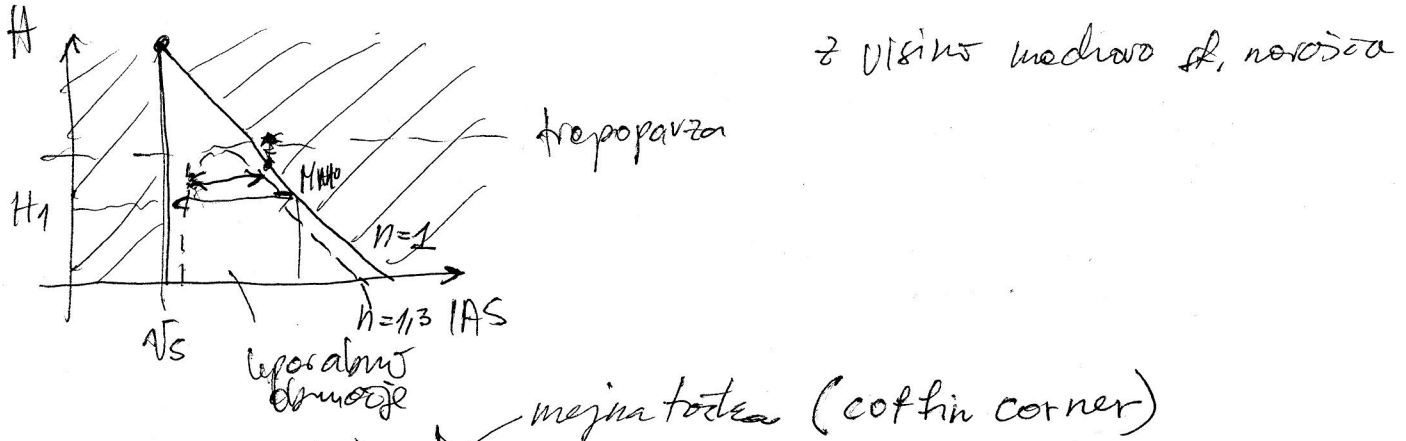 H
z višino machovo št. narašča
tropopavza
MMO
H1
n=1
n=1,3 IAS
VS
uporabno
območje
mejna točka (coffin corner)